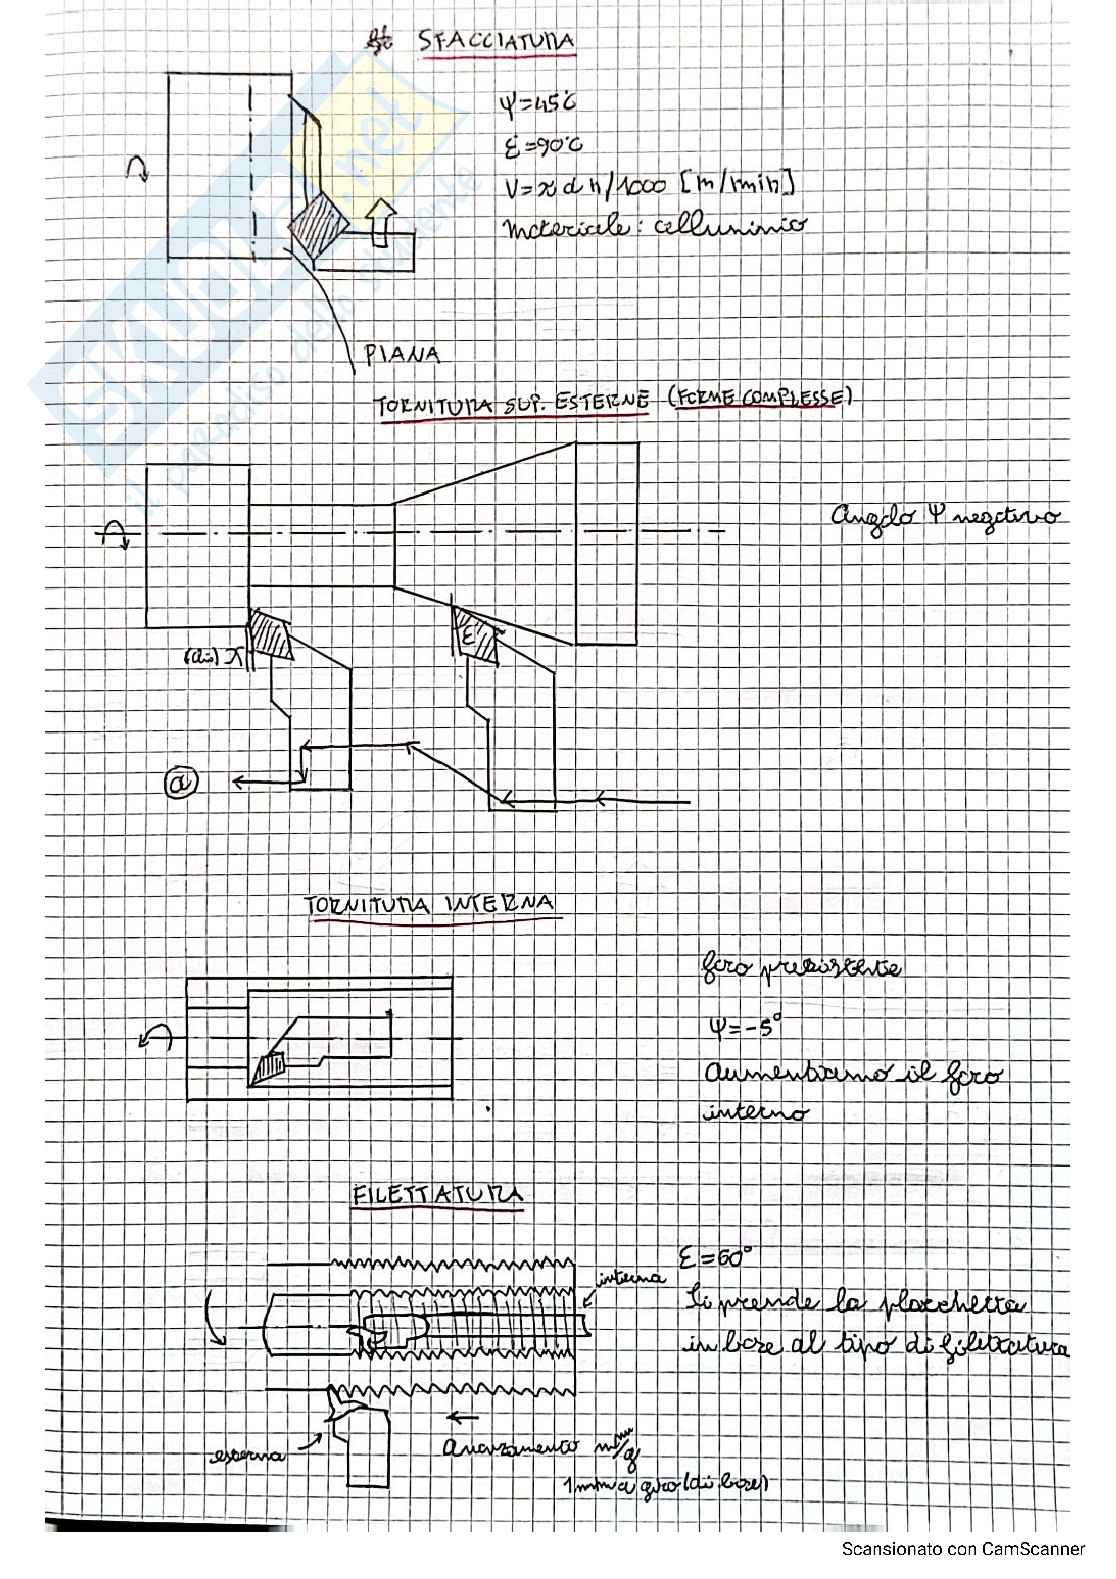 SFACCIATURA
ψ=45°
ε=90°
V=π d n/1000 [m/min]
Materiale: alluminio
PIANA
TORNITURA SUP. ESTERNE (FORME COMPLESSE)
Angolo ψ negativo
ε
χ
a
TORNITURA INTERNA
foro preesistente
ψ=-5°
Aumentiamo il foro
interno
FILETTATURA
ε=60°
interna
Si prende la placchetta
in base al tipo di filettatura
esterna
Avanzamento mm/g
1mm a giro (di base)
SKUOLA.net
il paradiso dello studente
Scansionato con CamScanner